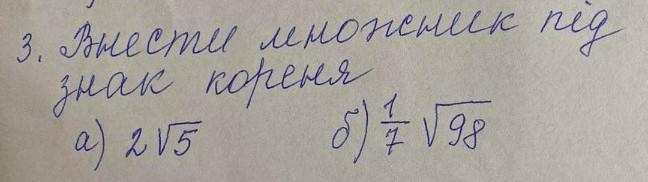 3. Внести множник під
знак кореня
а) 2√5 б) 1/7 √98